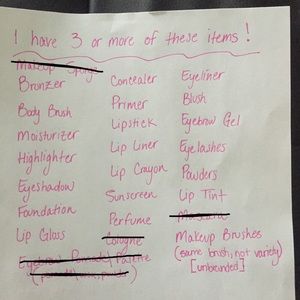 I have 3 or more of these items!
Makeup Sponge
Bronzer
Body Brush
Moisturizer
Highlighter
Eyeshadow
Foundation
Lip Gloss
Eyebrow Palette
Concealer
Primer
Lipstick
Lip Liner
Lip Crayon
Sunscreen
Perfume
Cologne
Eyeliner
Blush
Eyebrow Gel
Eyelashes
Powders
Lip Tint
Mascara
Makeup Brushes
(same brush, not variety)
[unbranded]